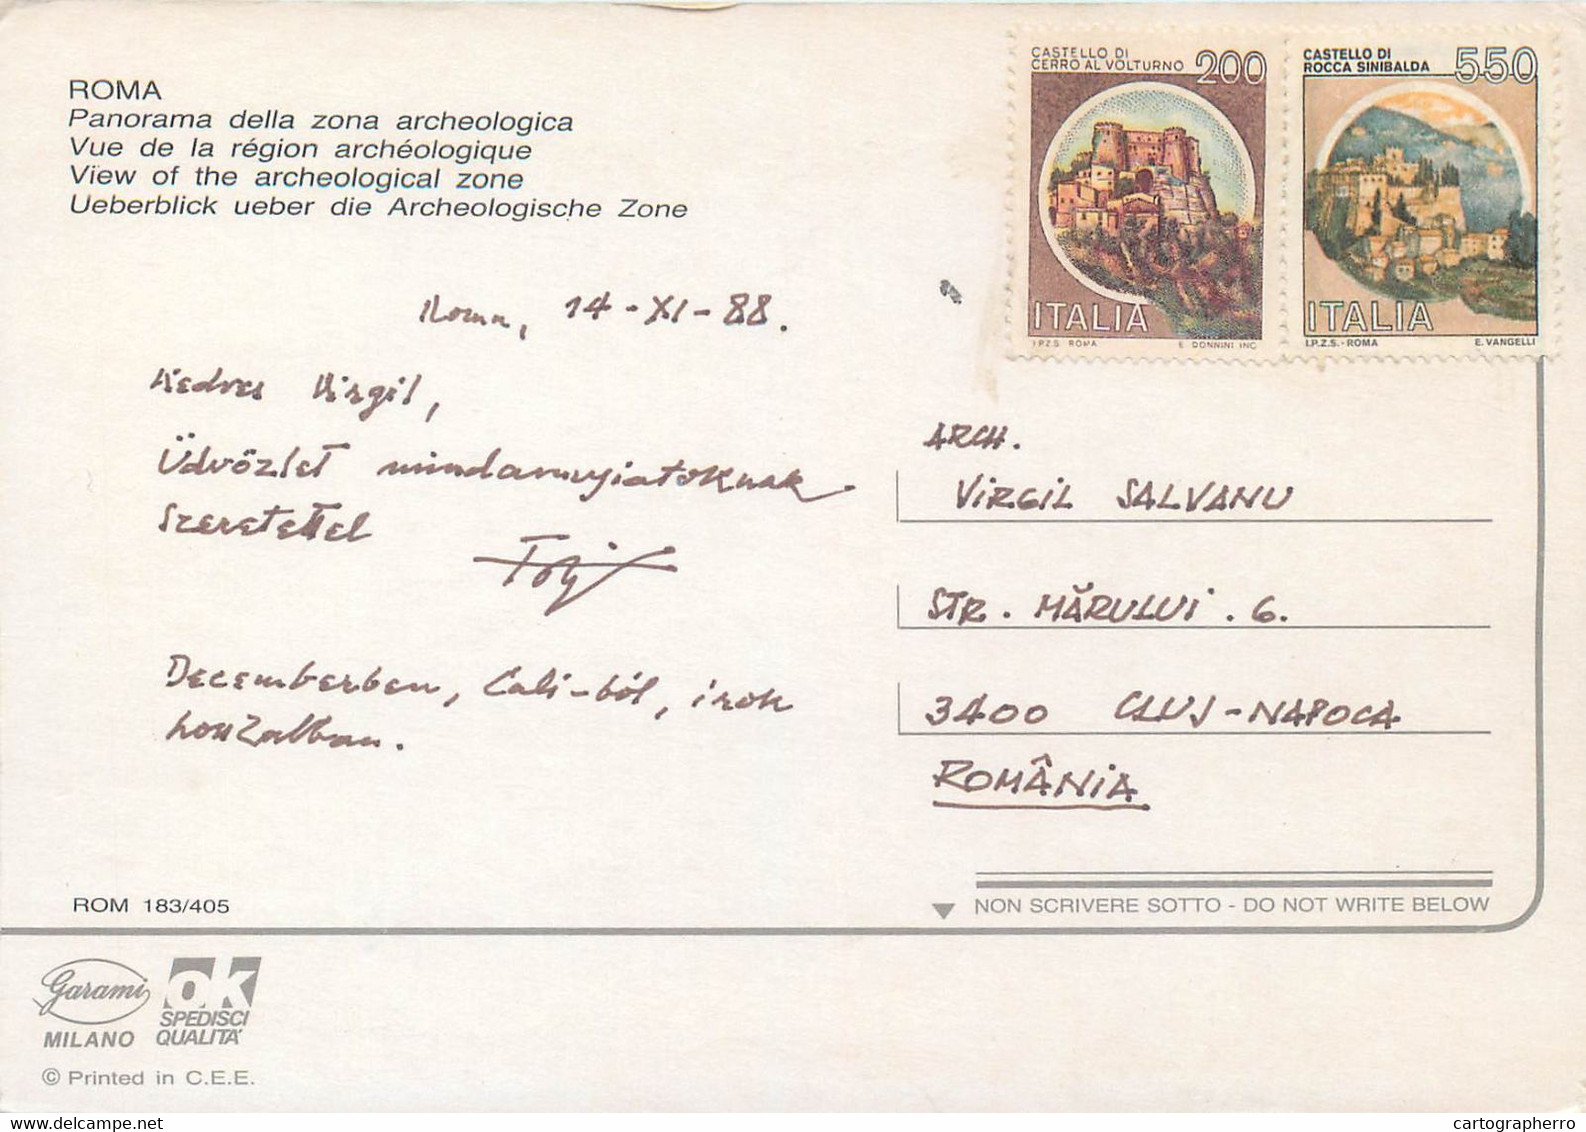 ROMA
Panorama della zona archeologica
Vue de la région archéologique
View of the archeological zone
Ueberblick ueber die Archeologische Zone
CASTELLO DI
CERRO AL VOLTURNO 200
ITALIA
I.P.Z.S. ROMA E. DONNINI INC.
CASTELLO DI
ROCCA SINIBALDA 550
ITALIA
I.P.Z.S. - ROMA E. VANGELLI
Roma, 14-XI-88.
Kedves Virgil,
Üdvözlet mindannyiatoknak
szeretettel
Decemberben, Cali-ból, írok
hosszabban.
ARCH.
VIRGIL SALVANU
STR. MĂRULUI. 6.
3400 CLUJ-NAPOCA
ROMÂNIA
ROM 183/405
NON SCRIVERE SOTTO - DO NOT WRITE BELOW
Garami
MILANO
OK
SPEDISCI
QUALITA'
© Printed in C.E.E.
cartographerro